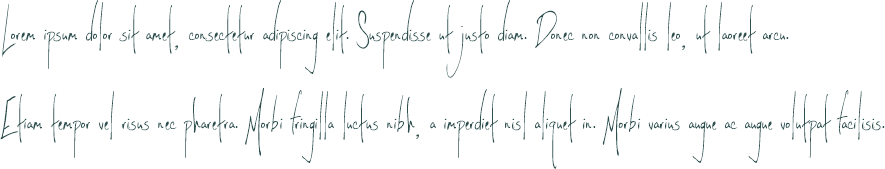 Lorem ipsum dolor sit amet, consectetur adipiscing elit. Suspendisse ut justo diam. Donec non convallis leo, ut laoreet arcu.
Etiam tempor vel risus nec pharetra. Morbi fringilla luctus nibh, a imperdiet nisl aliquet in. Morbi varius augue ac augue volutpat facilisis.